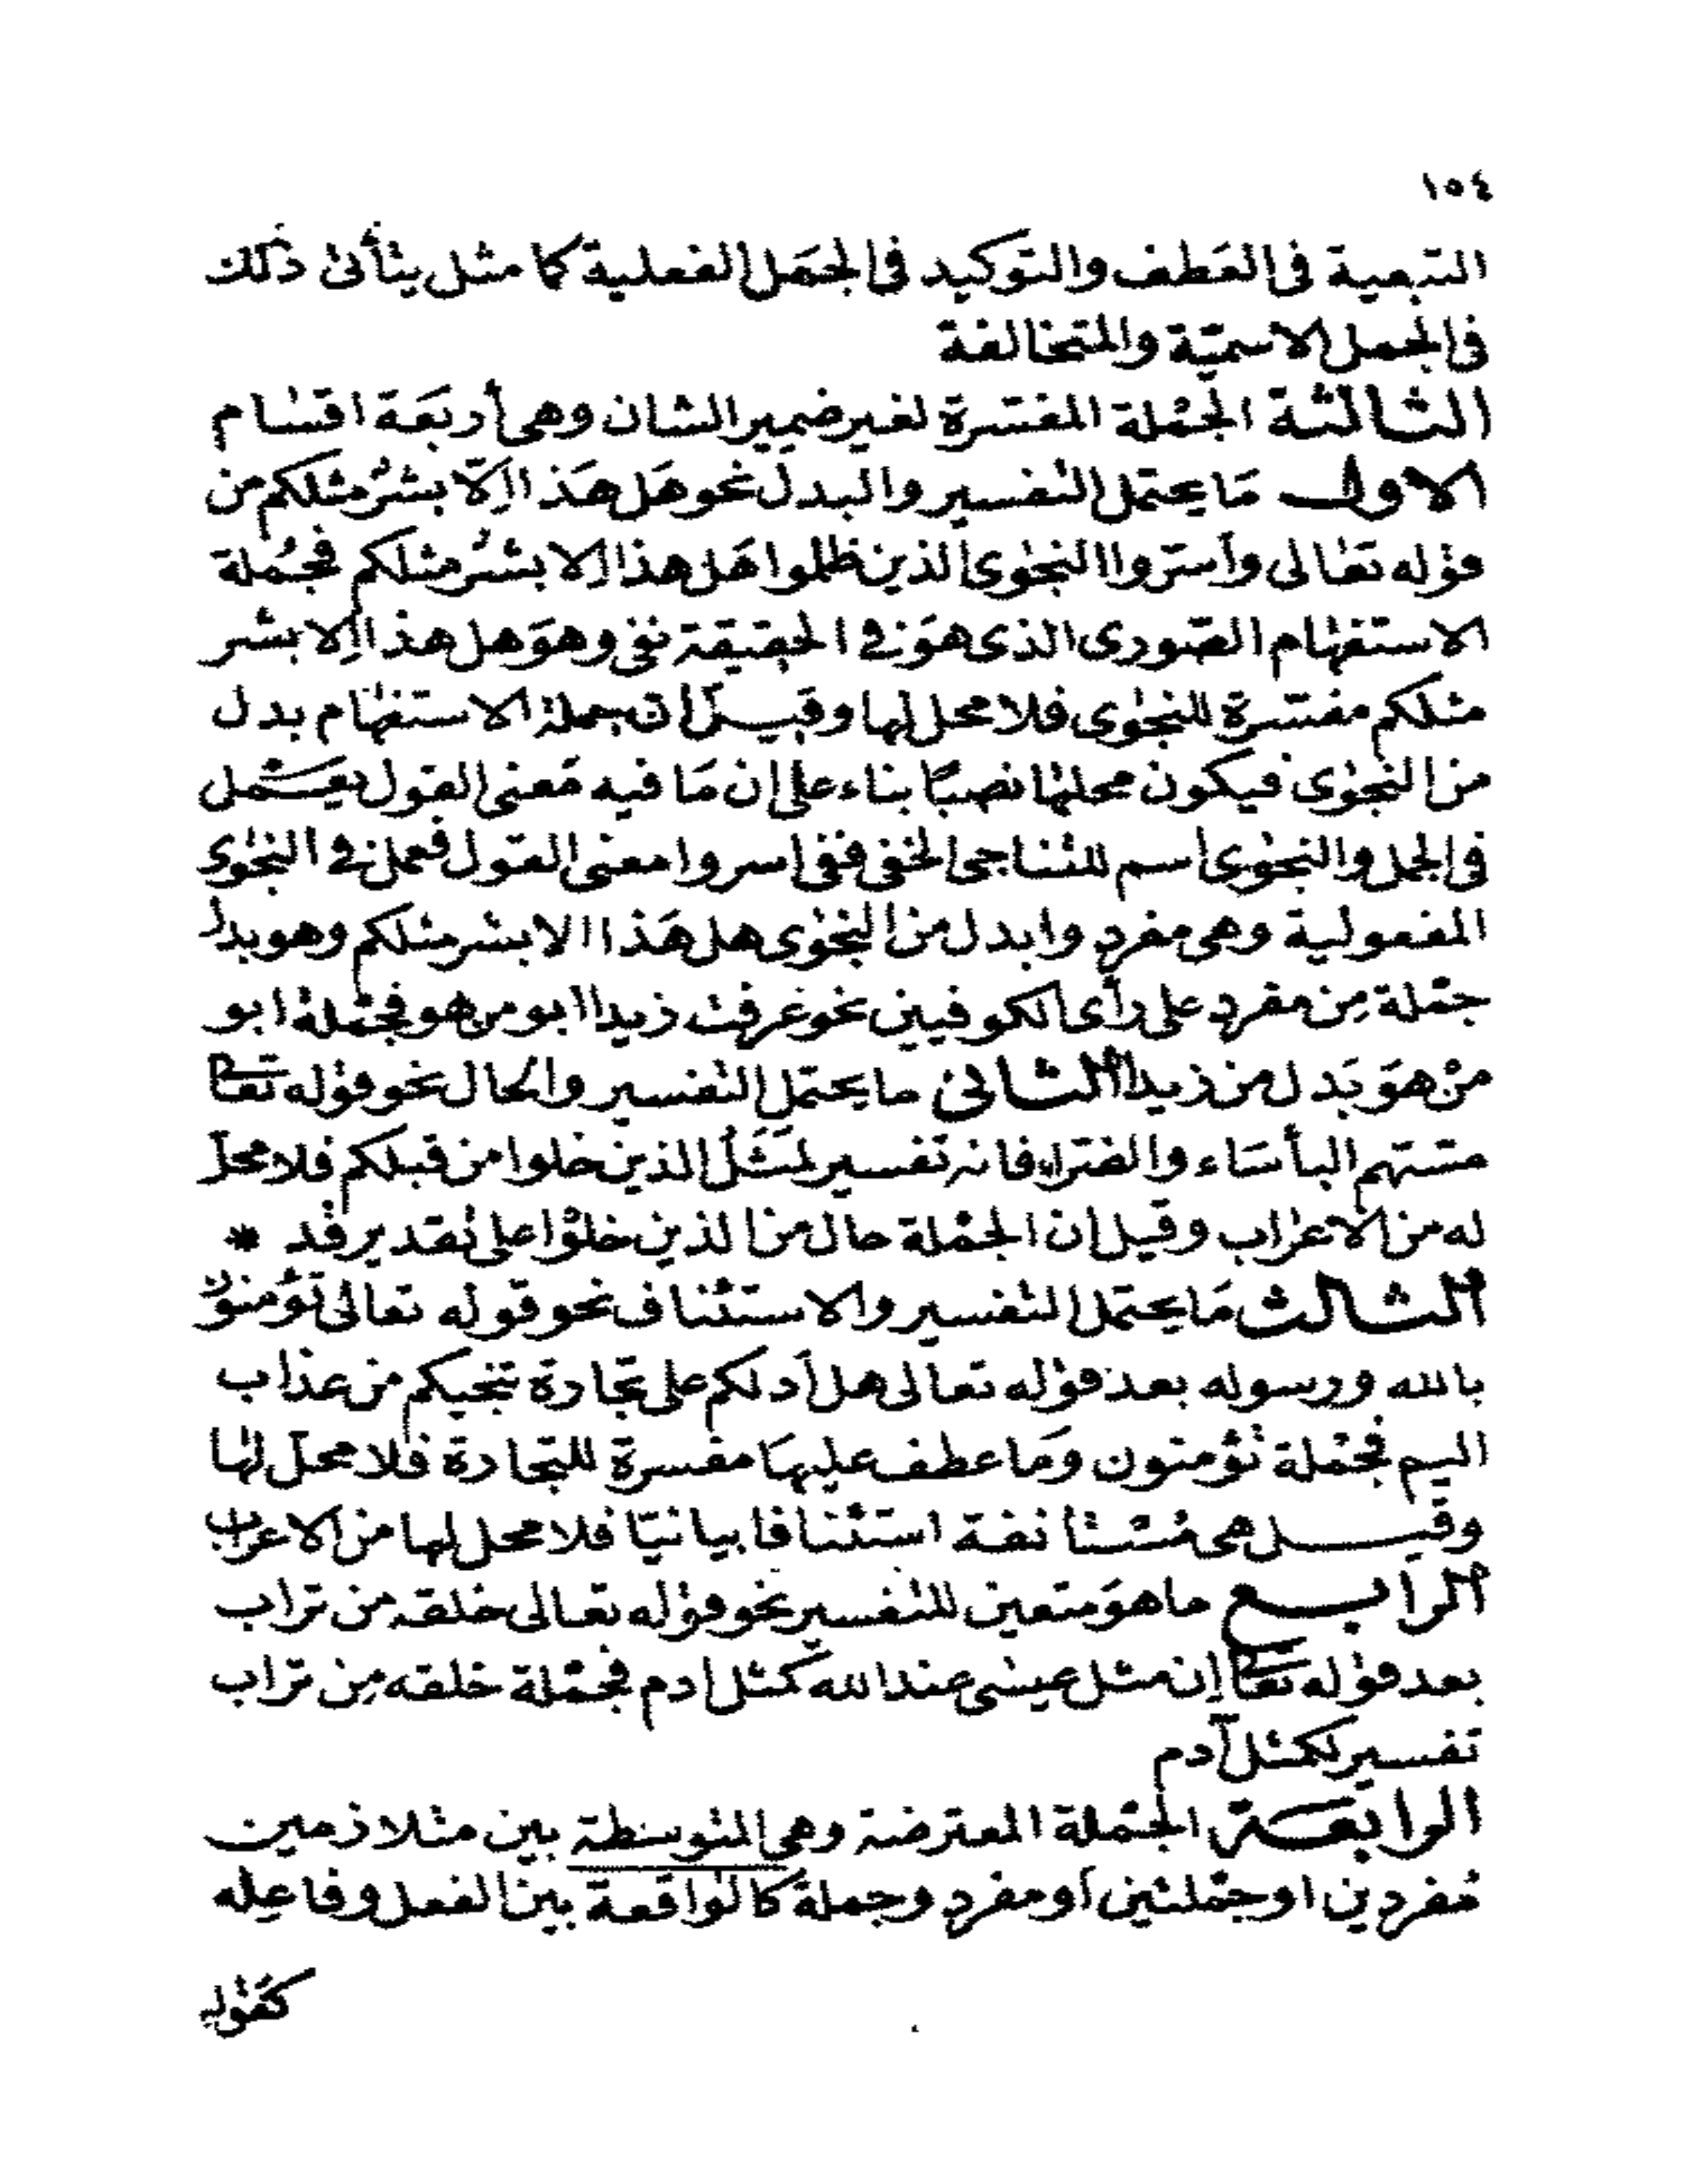 ١٥٤
التبعية فى العَطف والتوكيد فى الجمَل الفعلية كما مثل يتأتى ذلك
فى الجمل الاسميّة والمتخالفة
الثالثة الجملة المفسّرة لغير ضمير الشان وهى أربعَة اقسام
الاول مَا يحتمل التفسير والبدل نحو هَل هَذا إلّا بشرٌ مثلكم من
قوله تعالى وأسرّوا النجوى الذين ظلموا هَل هذا إلا بشرٌ مثلكم فجُملة
الاستفهام الصّورى الذى هوَ فى الحقيقة نفى وهوَ هل هذا إلا بشر
مثلكم مفسّرة للنجوى فلا محل لها وقيل انّ جملة الاستفهام بدل
من النجوى فيكون محلها نصبًا بناء على ان مَا فيه مَعنى القول يعمل
فى الجمل والنجوى اسم للتناجى الخفى ففى اسروا معنى القول فعمل فى النجوى
المفعولية وهى مفرد وابدل من النجوى هل هَذا الا بشر مثلكم وهو بدل
جملة مِن مفرد على رأى الكوفيين نحو عرفت زيدا ابو من هو فجملة ابو
منْ هوَ بَدل من زيدا الثانى ما يحتمل التفسير والحال نحو قوله تعا
مستهم البأسَاء والضراء فانه تفسير لمَثَلُ الذين خلوا من قبلكم فلا محلّ
له من الاعراب وقيل ان الجملة حال من الذين خلوْا على تقدير قد *
الثالث مَا يحتمل التفسير والاستئناف نحو قوله تعالى تؤمنون
بالله ورسوله بعد قوله تعالى هل أدلكم على تجارة تنجيكم من عذاب
اليم فجملة تؤمنون وَما عطف عليهَا مفسرة للتجارة فلا محلّ لها
وقيل هى مُستأنفة استئنافا بيانيّا فلا محل لها من الاعراب
الرابع ما هوَ متعين للتفسير نحو قوله تعالى خلقه من تراب
بعد قوله تعا إن مثل عيسى عند الله كمثل ادم فجملة خلقه مِن تراب
تفسير لكمثل آدم
الرابعَة الجملة المعترضة وهى المتوسطة بين متلازمين
مُفردين او جملتين أو مفرد وجملة كالواقعة بين الفعل وفاعِله
كقوله